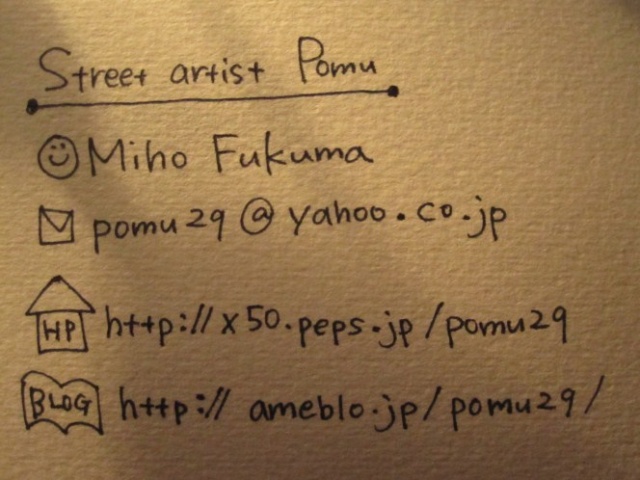 Street artist Pomu
Miho Fukuma
pomu29@yahoo.co.jp
HP http://x50.peps.jp/pomu29
BLOG http://ameblo.jp/pomu29/